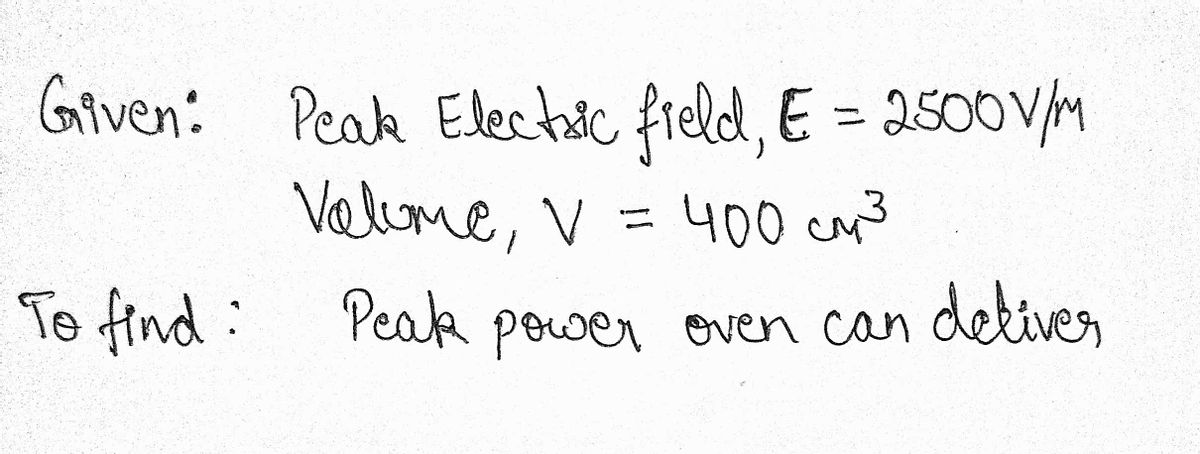 Given: Peak Electric field, E = 2500 V/m
Volume, V = 400 cm³
To find: Peak power oven can deliver